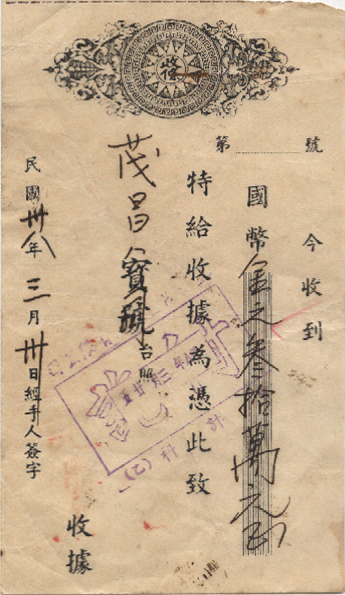 收據
第 號
今收到
國幣金元叁拾萬元正
特給收據為憑此致
茂昌寶號台照
收據
民國卅八年三月卅日經手人簽字